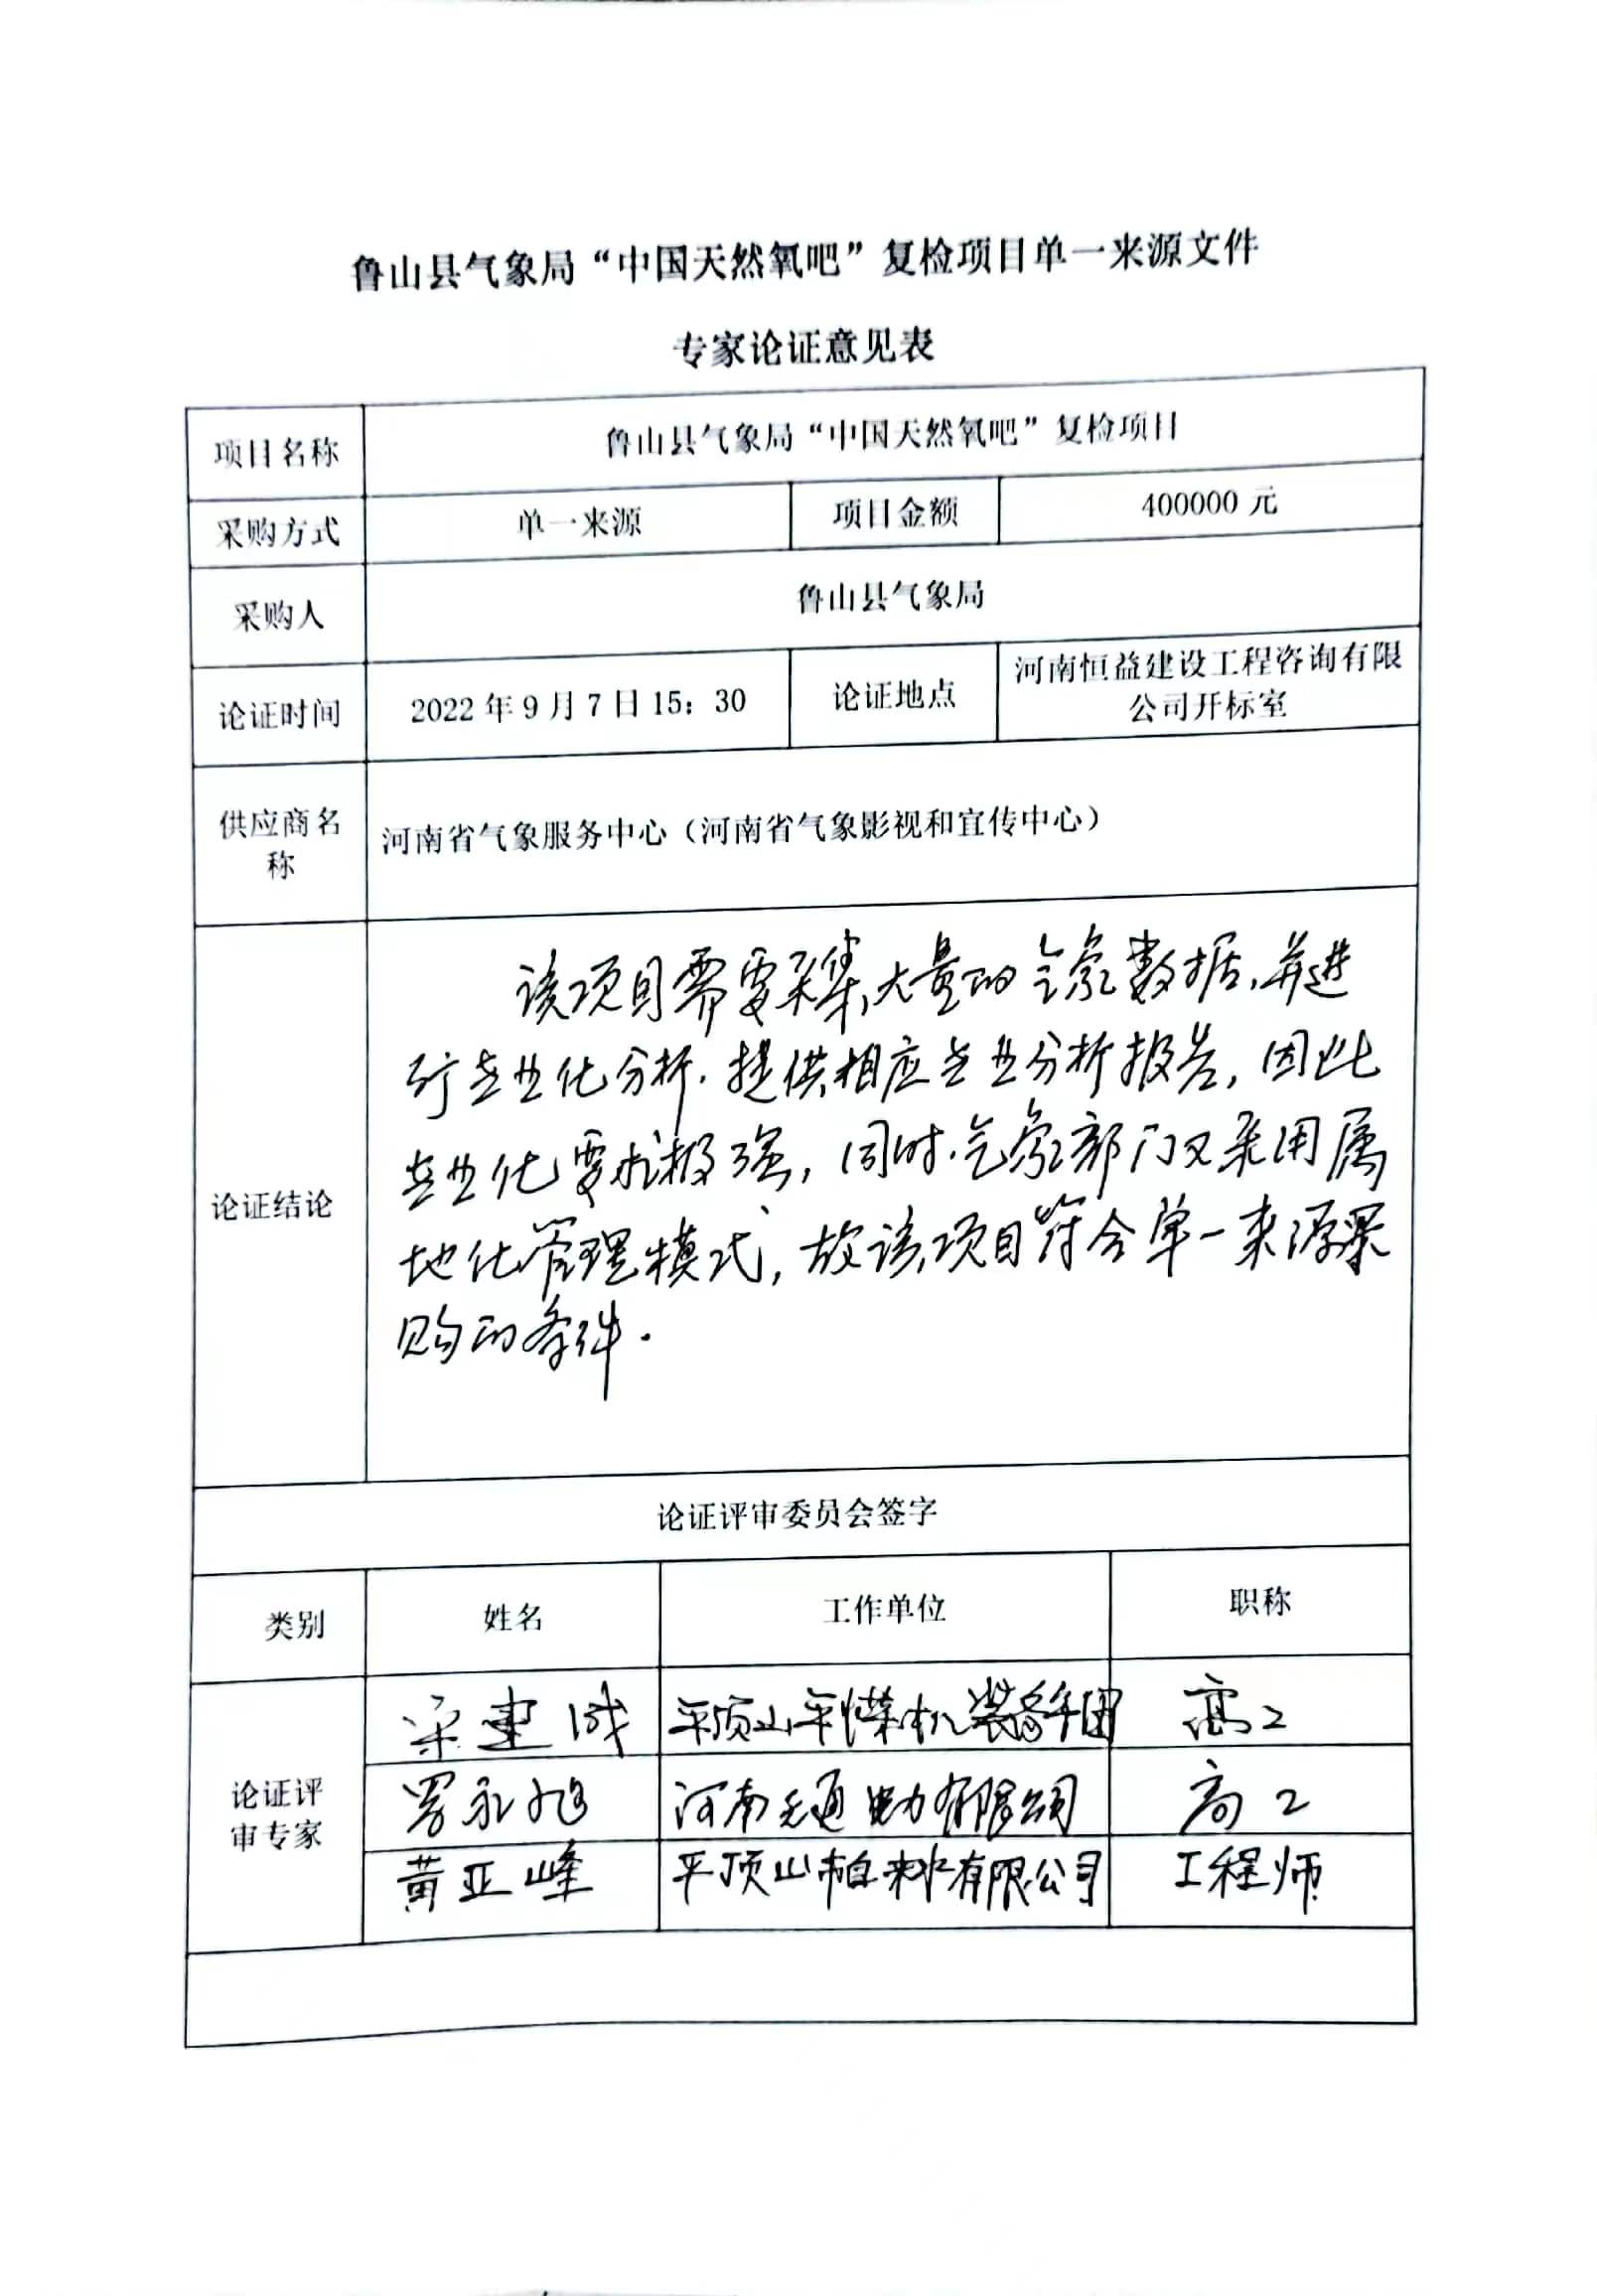 鲁山县气象局“中国天然氧吧”复检项目单一来源文件
专家论证意见表
项目名称 鲁山县气象局“中国天然氧吧”复检项目
采购方式 单一来源 项目金额 400000 元
采购人 鲁山县气象局
论证时间 2022 年 9 月 7 日 15：30 论证地点 河南恒益建设工程咨询有限
公司开标室
供应商名
称
河南省气象服务中心（河南省气象影视和宣传中心）
论证结论
该项目需要采集大量的气象数据，并进
行专业化分析，提供相应专业分析报告，因此
专业化要求极强，同时，气象部门又采用属
地化管理模式，故该项目符合单一来源采
购的条件.
论证评审委员会签字
类别 姓名 工作单位 职称
论证评
审专家
建成 平顶山平煤机装备集团 高工
罗永旭 河南 通电力有限公司 高工
黄亚峰 平顶山市自来水有限公司 工程师